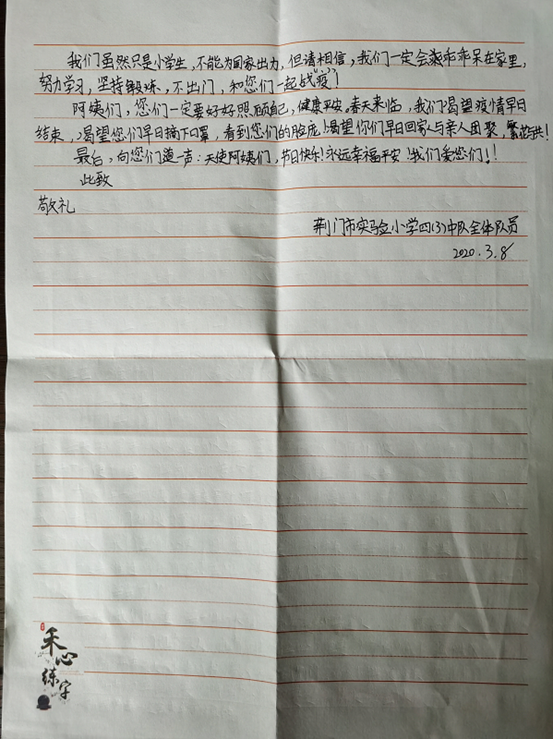 我们虽然只是小学生，不能为国家出力，但请相信，我们一定会乖乖呆在家里，
努力学习，坚持锻炼，不出门，和您们一起战"疫"！
阿姨们，您们一定要好好照顾自己，健康平安。春天来临，我们渴望疫情早日
结束，渴望您们早日摘下口罩，看到您们的脸庞！渴望你们早日回家与亲人团聚，繁花与共！
最后，向您们道一声：天使阿姨们，节日快乐！永远幸福平安！我们爱您们！！
此致
敬礼
荆门市实验小学四(3)中队全体队员
2020.3.8
禾心
练字